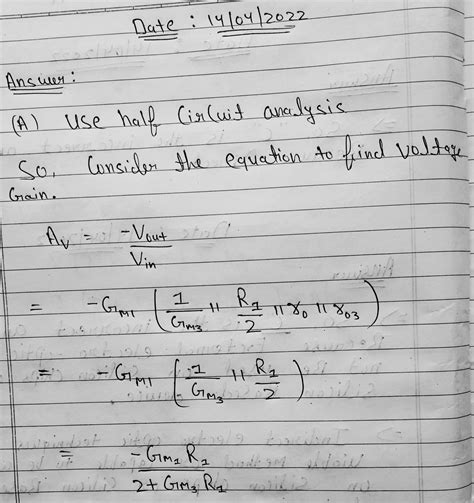 Date : 14/04/2022
Answer :
(A) Use half Circuit analysis
So, Consider the equation to find voltage
Gain.
Av = -Vout / Vin
= -GM1 ( 1/GM3 || R1/2 || r0 || r03 )
= -GM1 ( 1/GM3 || R1/2 )
= -GM1 R1 / 2 + GM3 R1